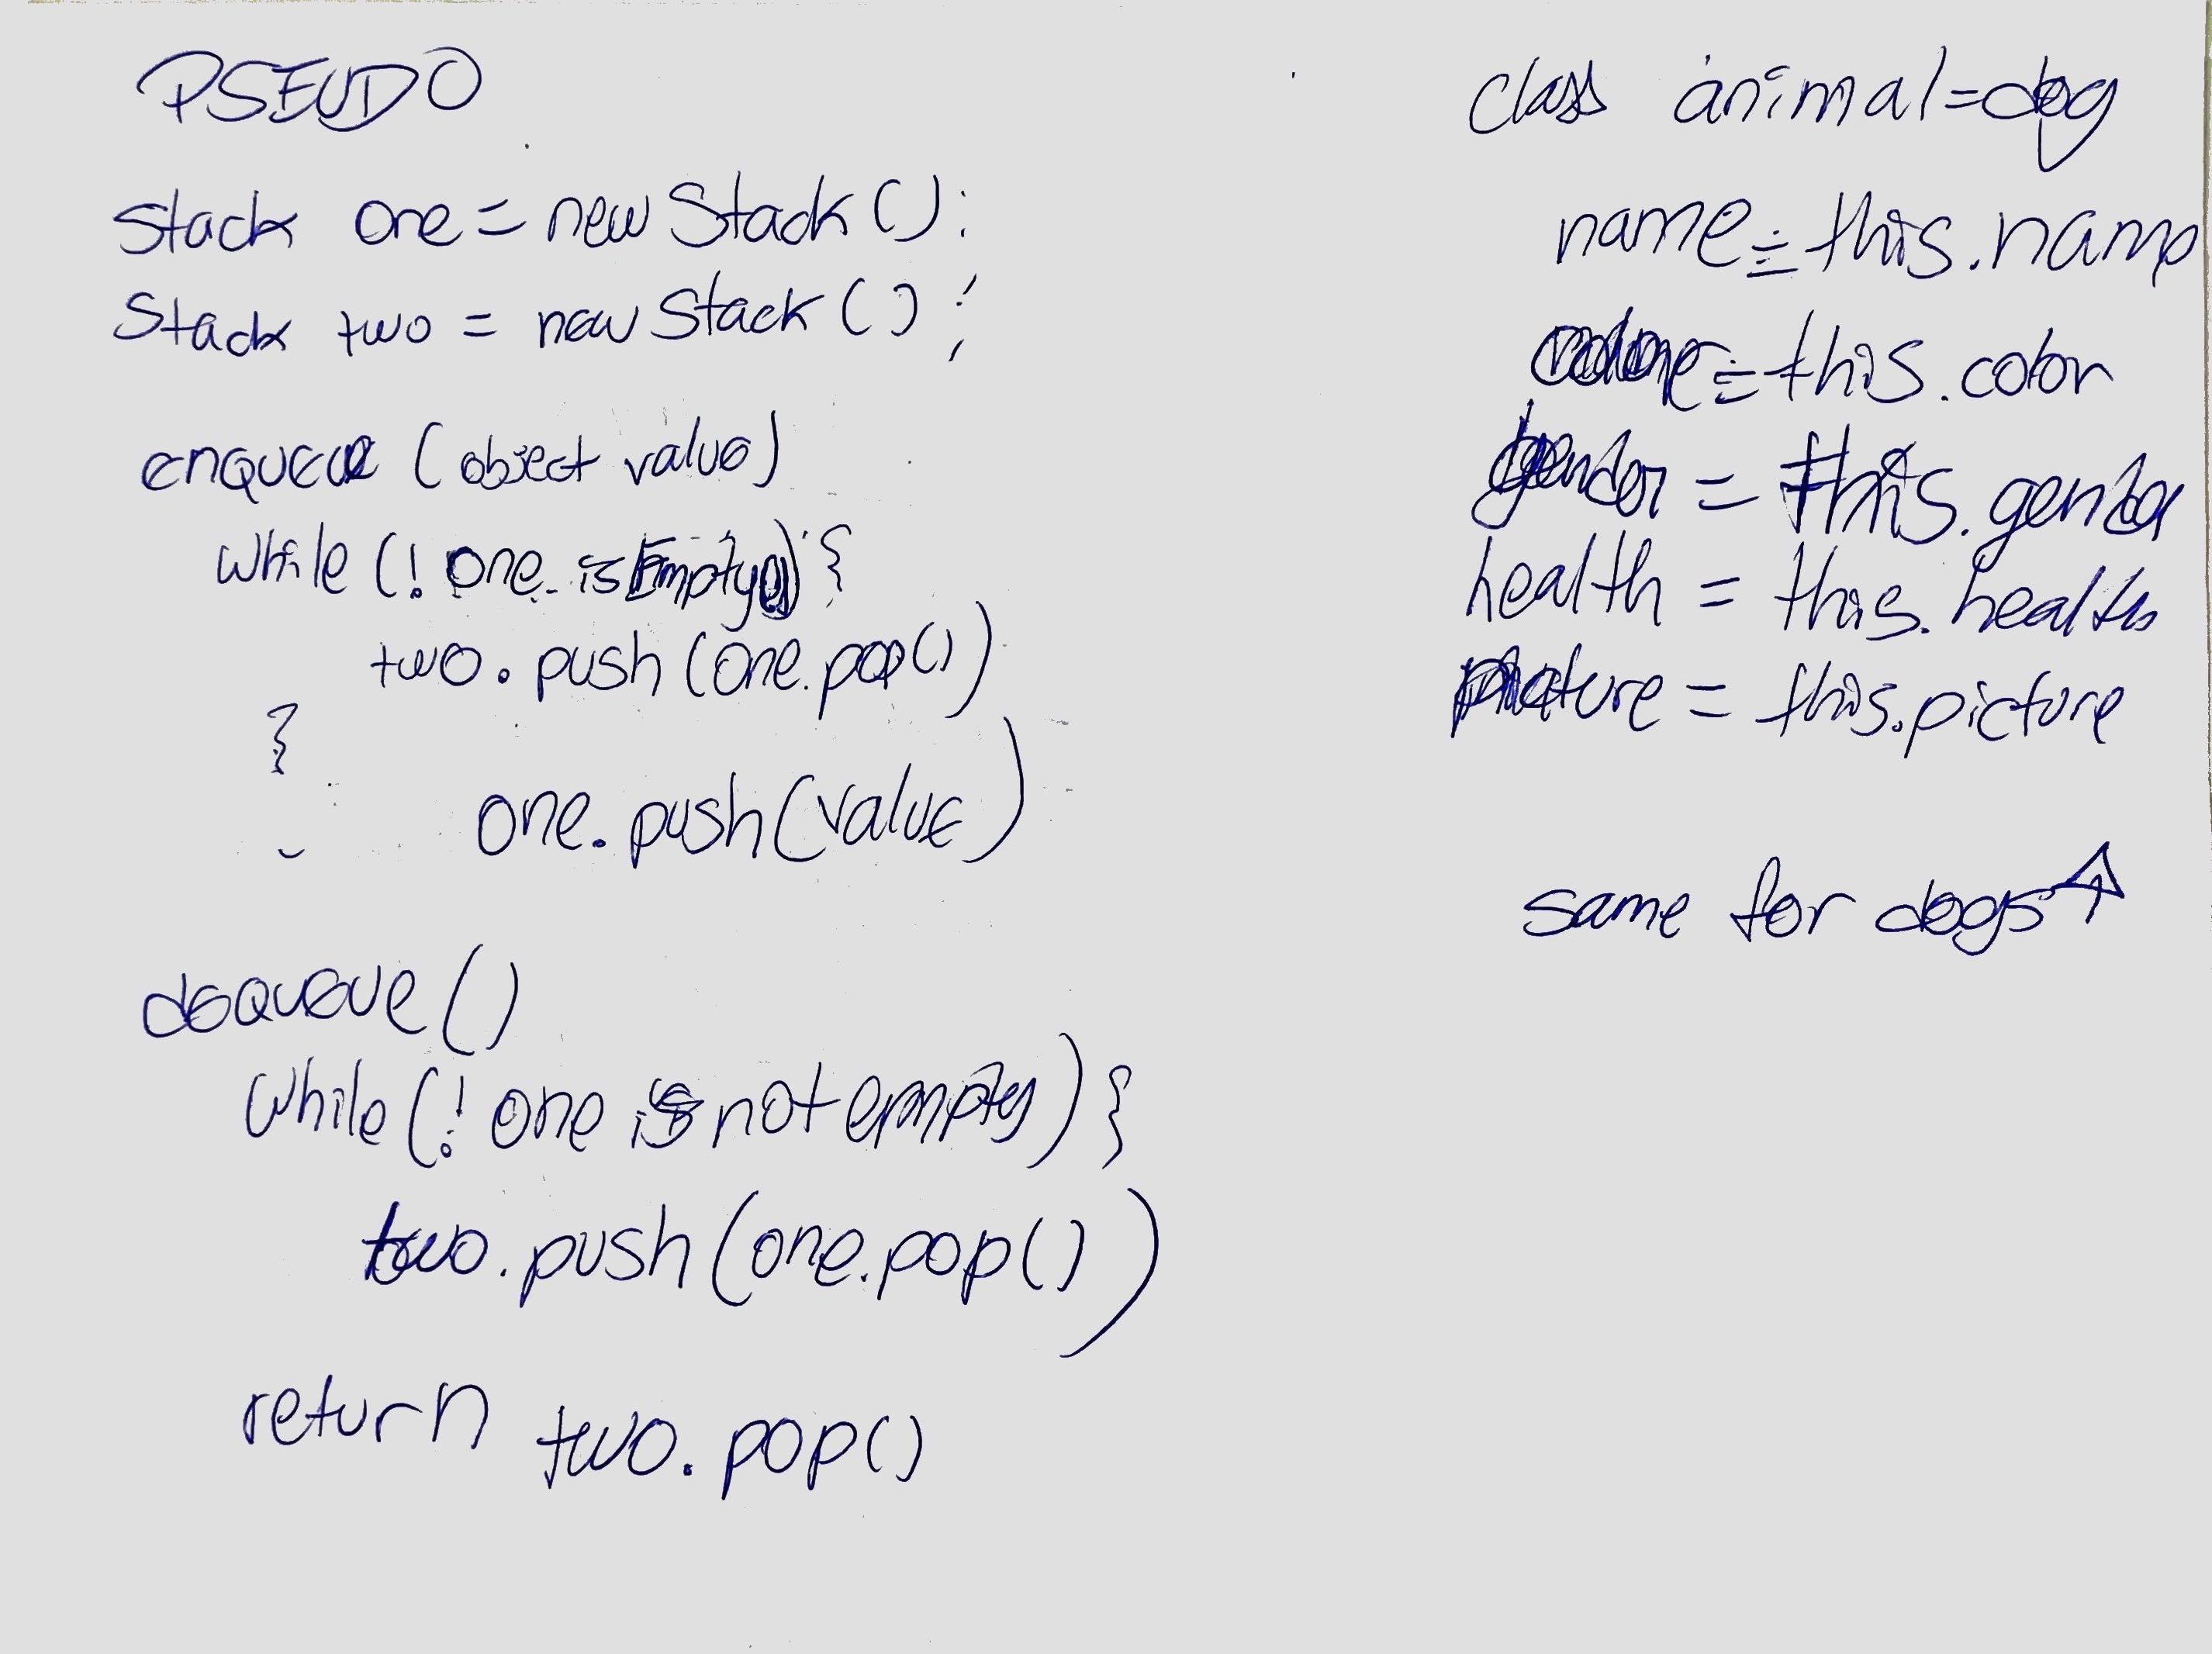 PSEUDO
Stack one = new Stack():
Stack two = new Stack();
enqueue (object value)
while (! one. isEmpty()) {
two. push (one. pop())
}
one. push (value)
dequeue ()
while (! one is not empty) {
two. push (one. pop())
return two. pop()
class animal = dog
name = this. name
= this. color
gender = this. gender
health = this. health
picture = this. picture
same for dogs ↑